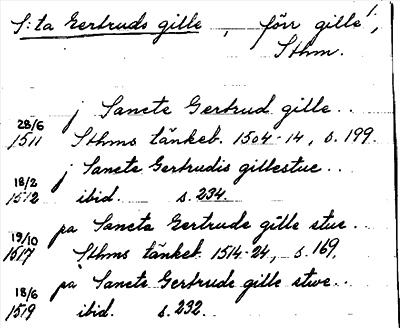 S:ta Gertruds gille, förr gille!,
Sthm.
j Sancte Gertrud gille..
28/6 1511 Sthms tänkeb. 1504-14, s. 199.
j Sancte Gertrudis gillestue..
18/2 1512 ibid. s. 234.
pa Sancta Gertrude gille stue..
19/10 1517 Sthms tänkeb. 1514-24, s. 169,
pa Sancte Gertrude gille stwe..
18/6 1519 ibid. s. 232.